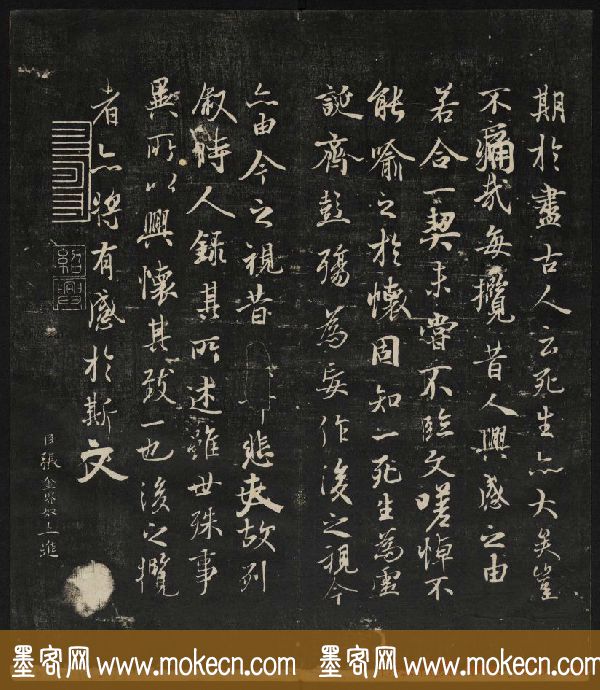 期於盡古人云死生亦大矣豈
不痛哉每攬昔人興感之由
若合一契未嘗不臨文嗟悼不
能喻之於懷固知一死生為虛
誕齊彭殤為妄作後之視今
亦由今之視昔悲夫故列
叙時人錄其所述雖世殊事
異所以興懷其致一也後之攬
者亦將有感於斯文
張金界奴上進
墨客网 www.mokecn.com 墨客网 www.mokecn.com 墨客网